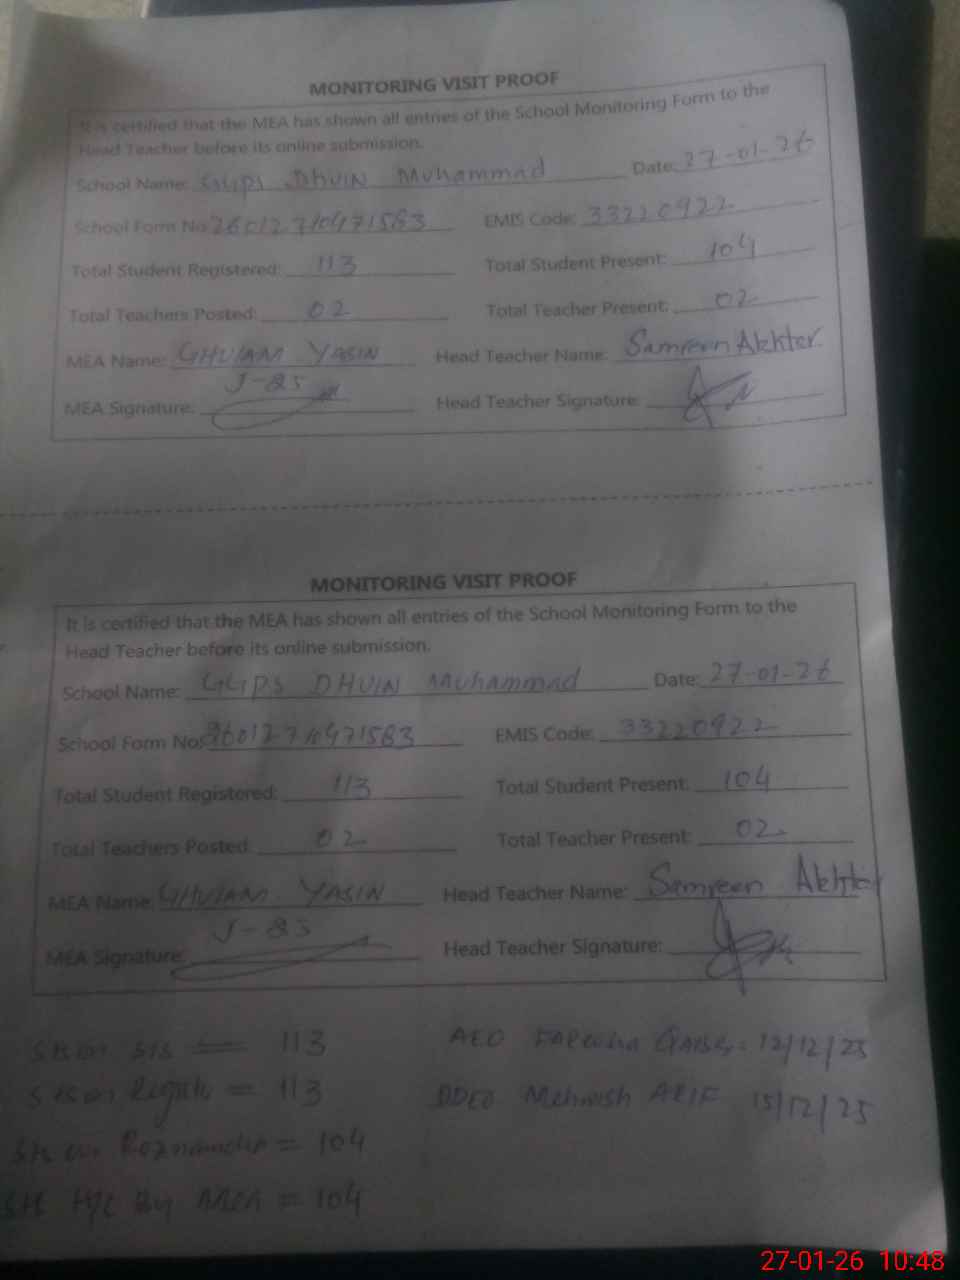 MONITORING VISIT PROOF
It is certified that the MEA has shown all entries of the School Monitoring Form to the
Head Teacher before its online submission.
School Name: GGPS DHUIN Muhammad Date: 27-01-26
School Form No: EMIS Code: 33220922
Total Student Registered: 113 Total Student Present: 104
Total Teachers Posted: 02 Total Teacher Present: 02
MEA Name: GHULAM YASIN Head Teacher Name: Samreen Akhter.
J-85
MEA Signature: Head Teacher Signature:
MONITORING VISIT PROOF
It is certified that the MEA has shown all entries of the School Monitoring Form to the
Head Teacher before its online submission.
School Name: GGPS DHUIN Muhammad Date: 27-01-26
School Form No: EMIS Code: 33220922
Total Student Registered: 113 Total Student Present: 104
Total Teachers Posted: 02 Total Teacher Present: 02
MEA Name: GHULAM YASIN Head Teacher Name: Samreen Akhter
J-85
MEA Signature: Head Teacher Signature:
Sts on SIS = 113 AEO 12/12/25
Sts on = 113 DDEO Mehwish ARIF 15/12/25
Sts on = 104
Sts H/C By MEA = 104
27-01-26 10:48